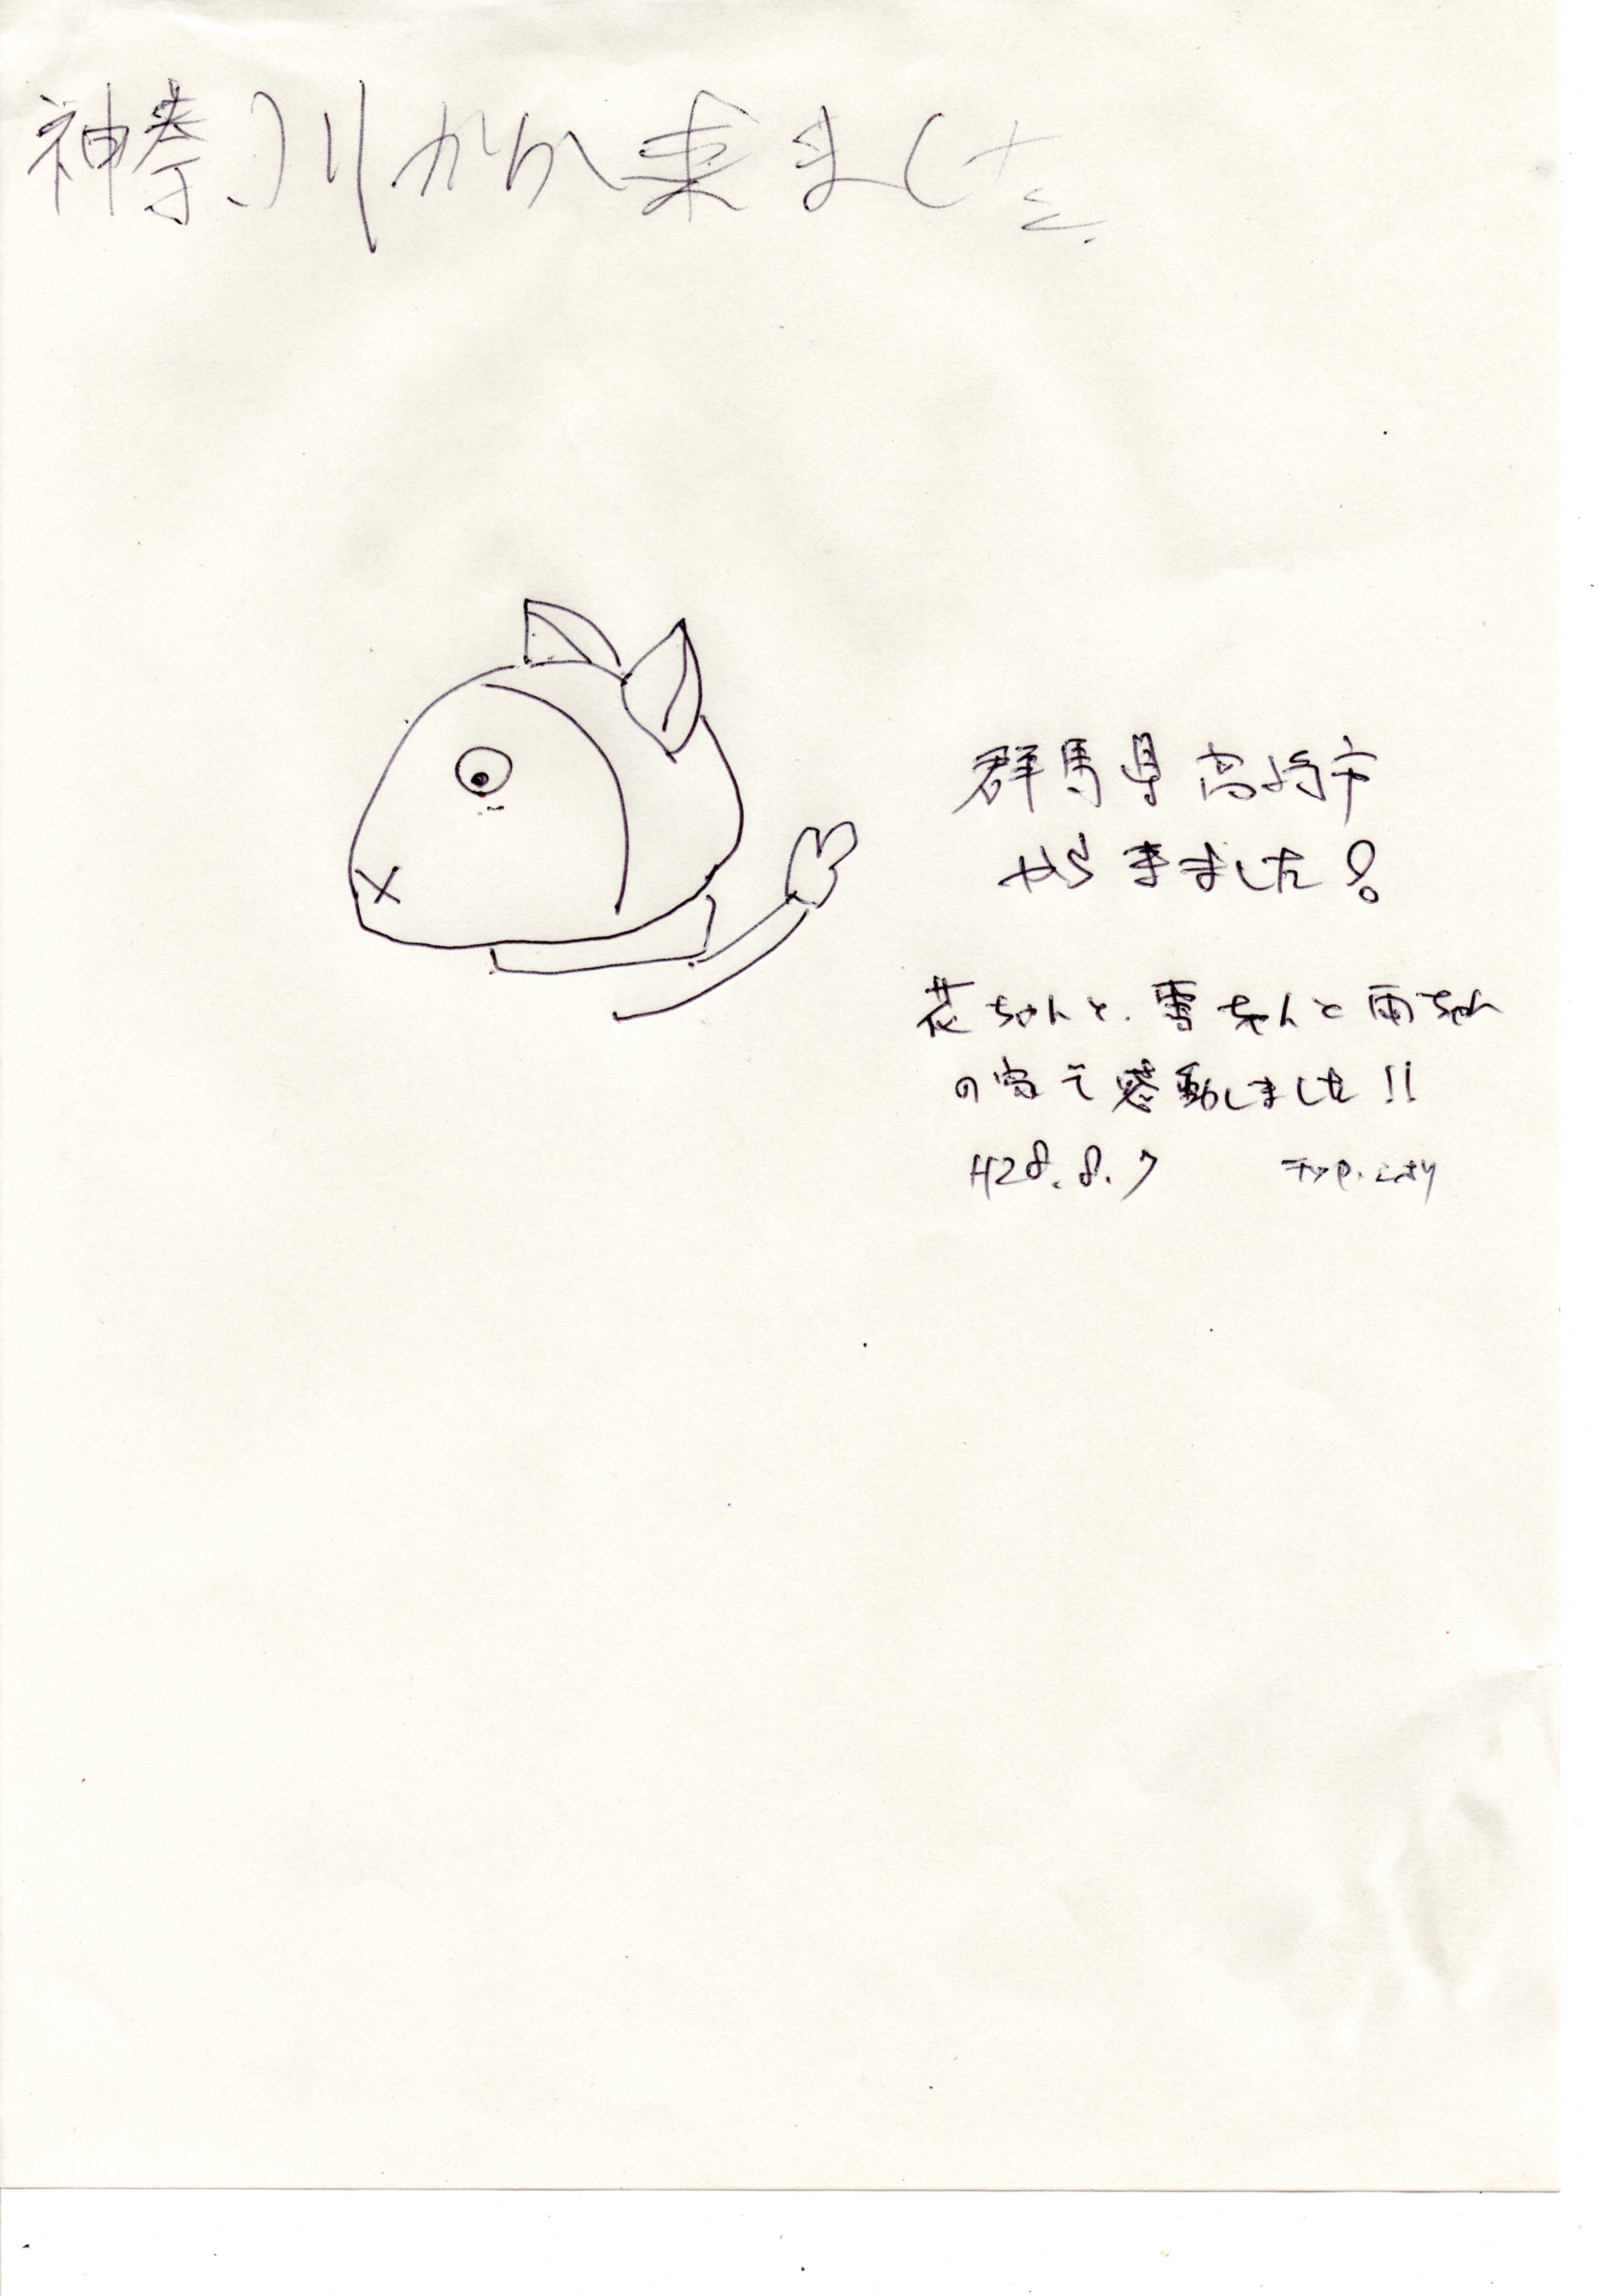 神奈川から来ました。
群馬県高崎市
からきました!
花ちゃんと、雪ちゃんと雨ちゃん
の家で感動しました!!
H28.8.7